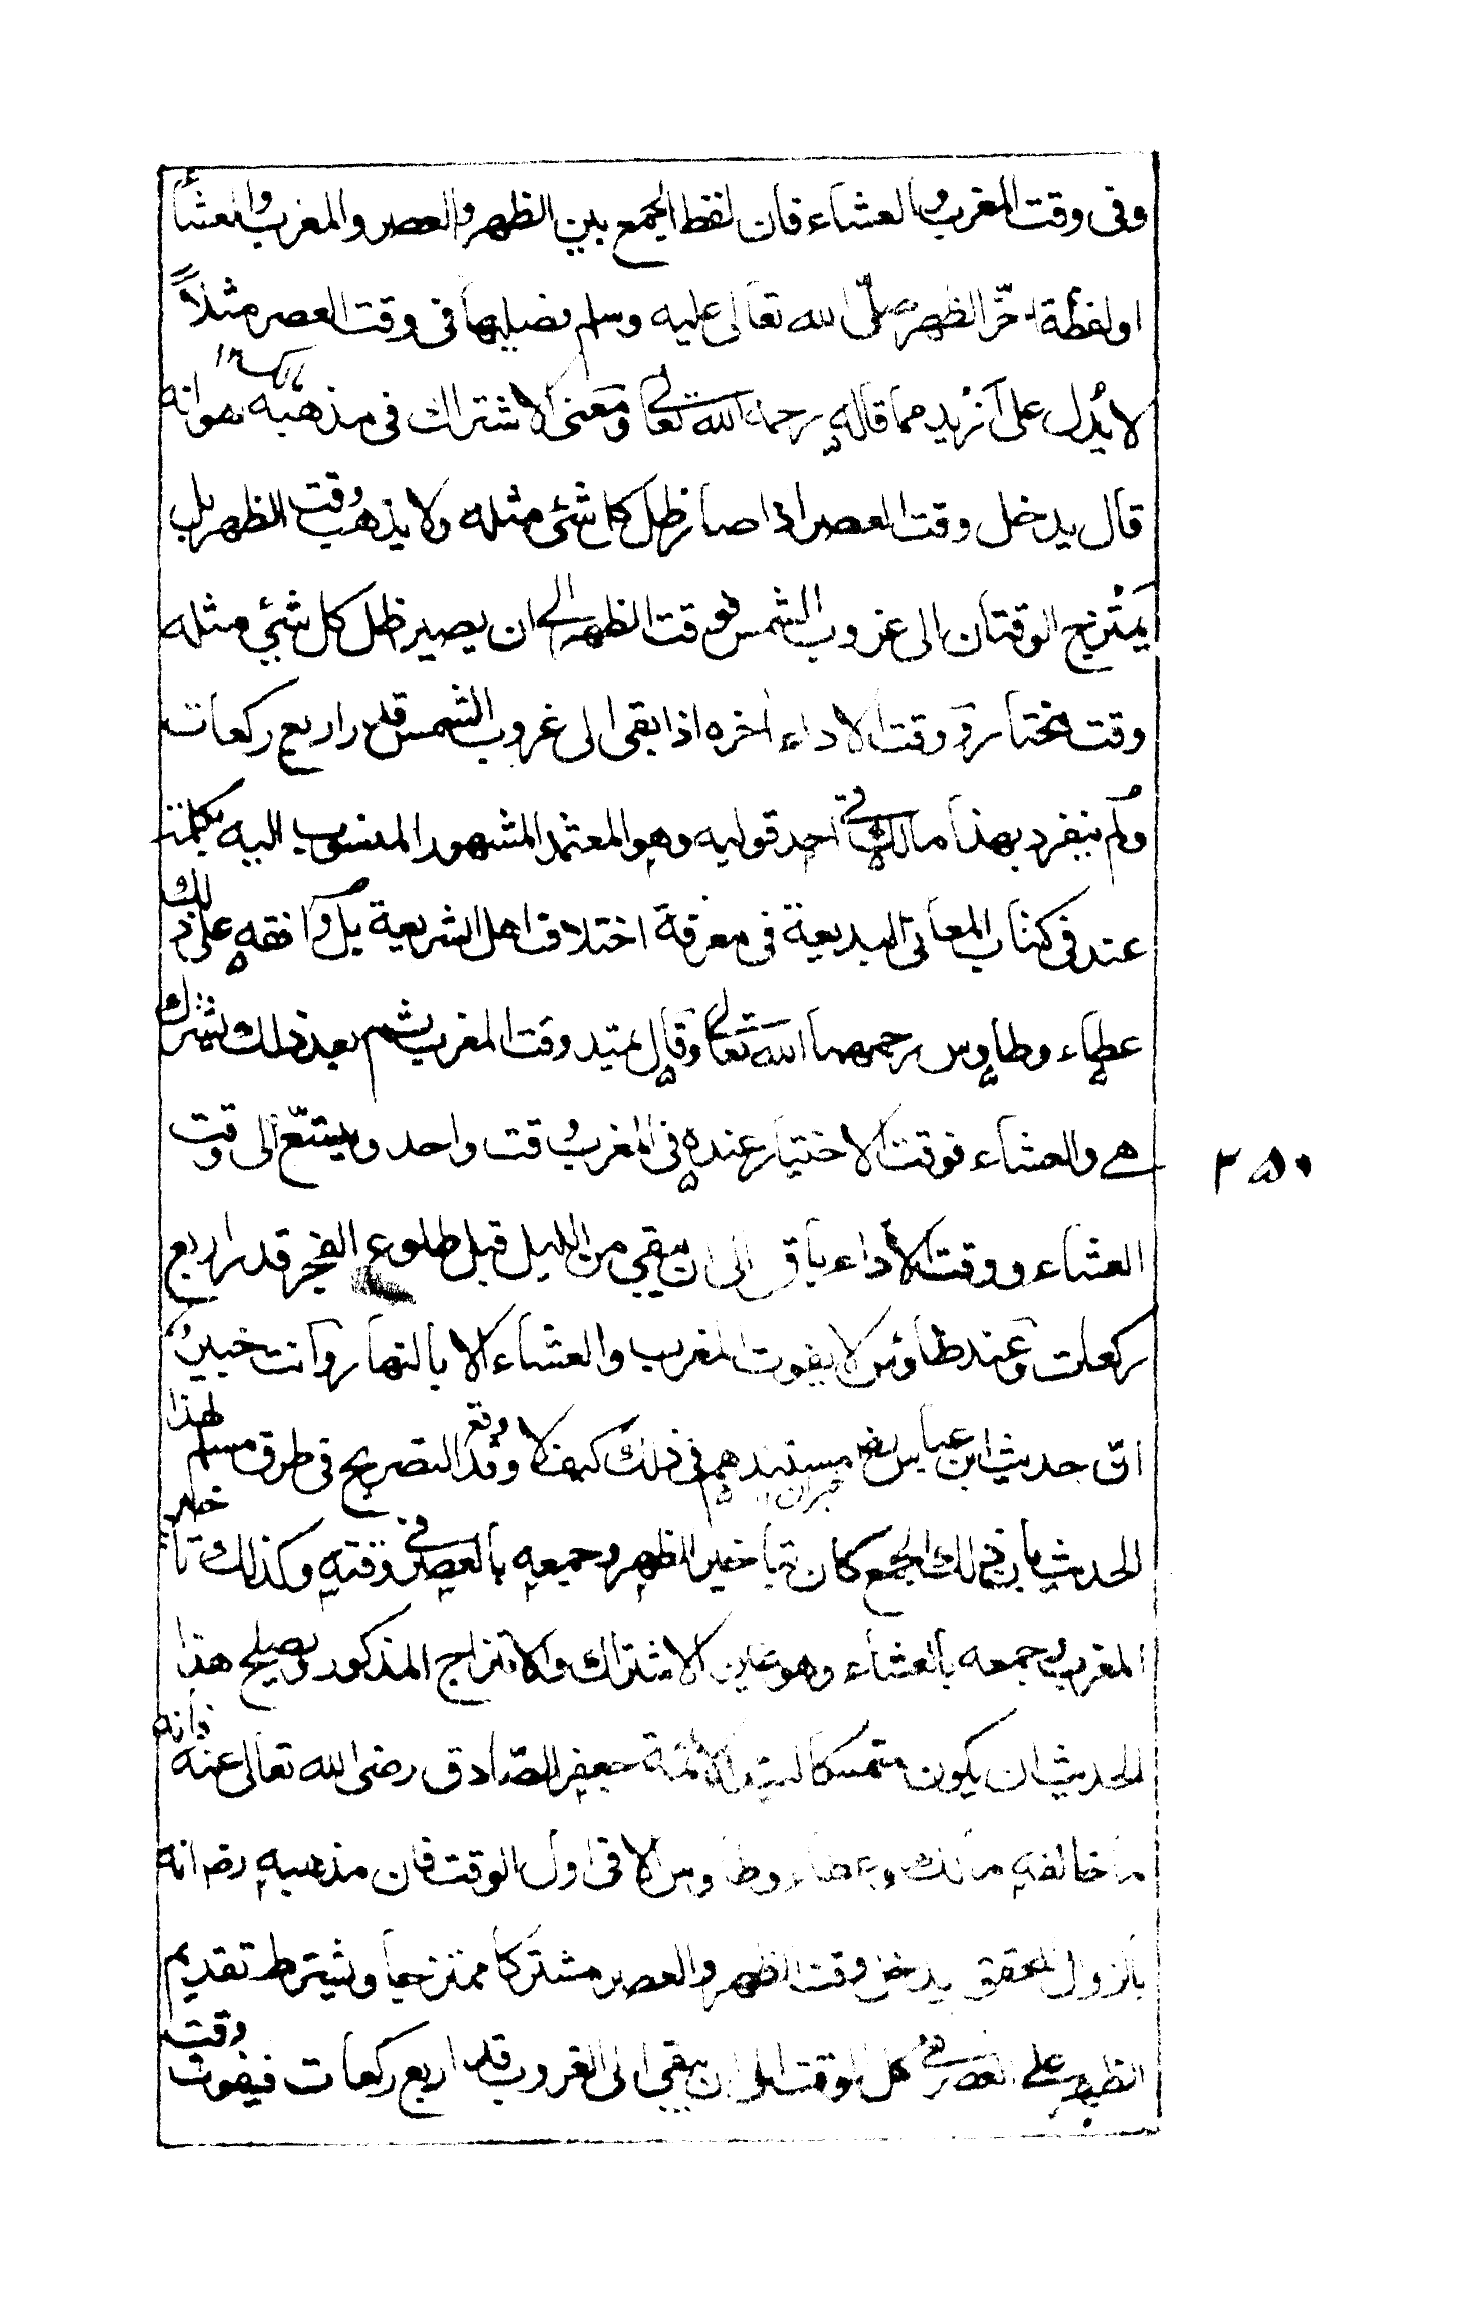 وفى وقت المغرب والعشاء فان لفظ الجمع بين الظهر والعصر والمغرب والعشاء
او لفظة اخّر الظهر صلّى الله تعالى عليه وسلم فصليها فى وقت العصر مثلاً
لا يُدل على ازيد مما قاله رحمه الله تعالى ومعنى الاشتراك فى مذهبه هو انه
مالك ١٢
قال يدخل وقت العصر اذا صار ظل كل شئ مثله ولا يذهب وقت الظهر بل
يمتزج الوقتان الى غروب الشمس فوقت الظهر الى ان يصير ظل كل شئ مثله
وقت مختار ووقت الاداء اخره اذا بقى الى غروب الشمس قدر اربع ركعات
ولم ينفرد بهذا مالك فى احد قوليه وهو المعتمد المشهور المنسوب اليه
عند فى كتاب المعانى البديعية فى معرفة اختلاف اهل الشريعية بل وافقه على ذلك
عطاء وطاوس رحمهما الله تعالى وقال يمتد وقت المغرب ثم بعد ذلك يشترك
هے والعشاء فوقت الاختيار عنده فى المغرب وقت واحد ويتسّع الى وقت
٢٥٠
العشاء ووقت الاداء باق الى ان يبقى من الليل قبل طلوع الفجر قدر اربع
ركعات وعند طاوس لا يفوت المغرب والعشاء الا بالنهار وانت خبير
انّ حديث ابن عباس رض مستندهم فى ذلك كيف لا وقد وقع التصريح فى طرق مسلم لهذا
الحديث بان ذلك الجمع كان بتاخير الظهر وجمعه بالعصر فى وقته وكذلك تاخير
المغرب وجمعه بالعشاء وهو عين الاشتراك والامتزاج المذكور ويصلح هذا
الحديث ان يكون متمسكا لسيد الائمة جعفر الصّادق رضى الله تعالى عنه فانه
ما خالفه مالك وعطاء وطاوس الا فى اول الوقت فان مذهبه رض انه
بالزوال المحقق يدخل وقت الظهر والعصر مشتركا ممتزجا ويشترط تقديم
الظهر على العصر فى كل الوقت الى ان يبقى الى الغروب قدر اربع ركعات فيفوت وقت